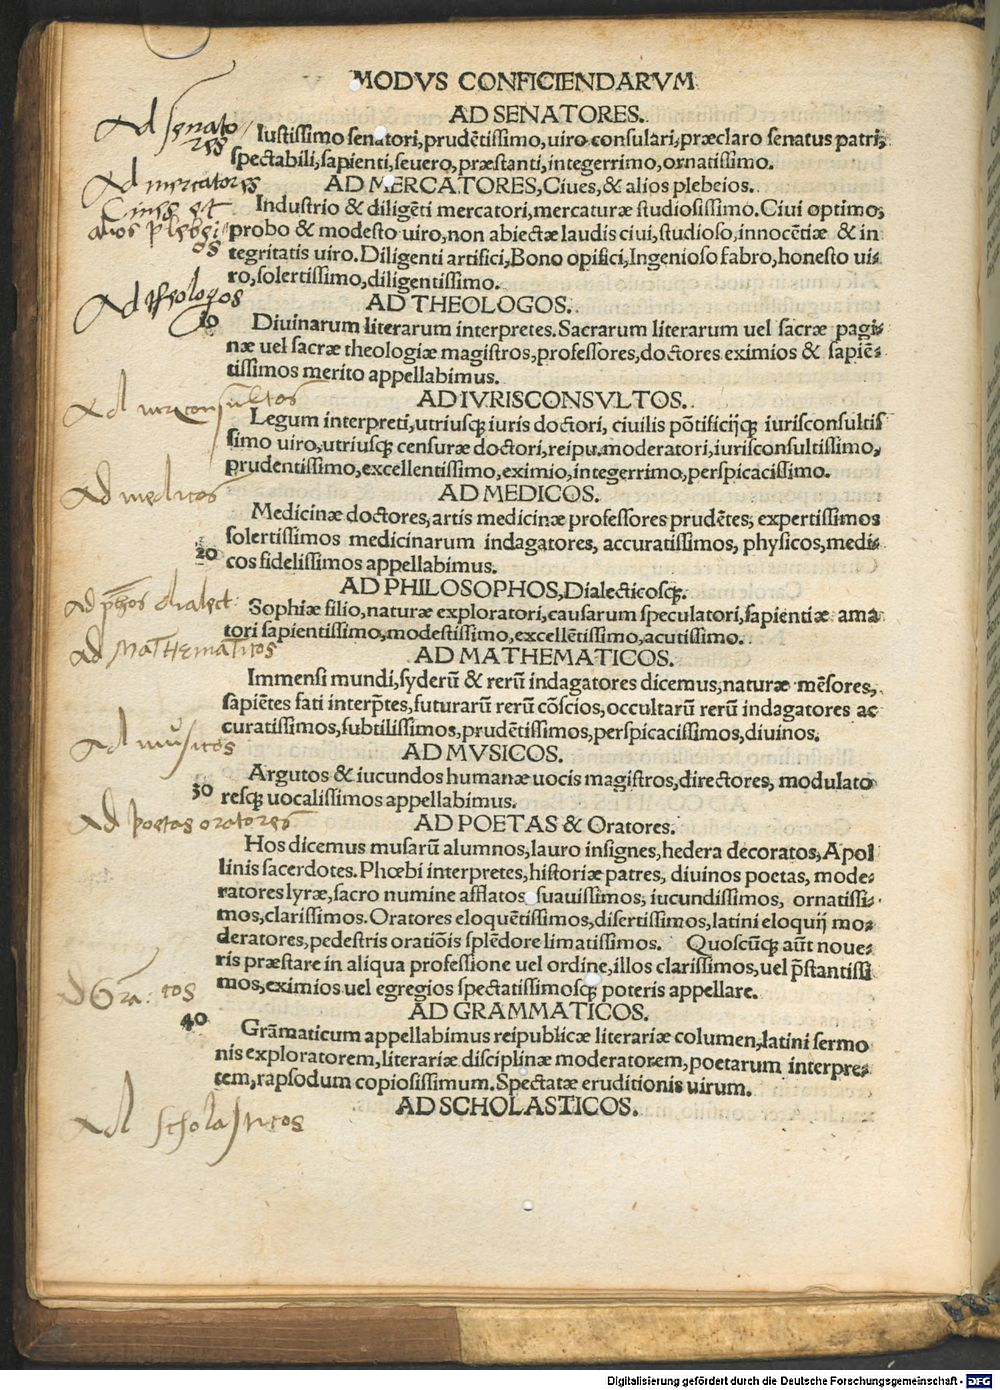 MODVS CONFICIENDARVM
AD SENATORES.
Ad senato
res
Iustissimo senatori,prudētissimo,uiro consulari,præclaro senatus patri,
spectabili,sapienti,seuero,præstanti,integerrimo,ornatissimo.
Ad mercatores
Ciues et
alios plebei
os
AD MERCATORES,Ciues,& alios plebeios.
Industrio & diligēti mercatori,mercaturæ studiosissimo.Ciui optimo,
probo & modesto uiro,non abiectæ laudis ciui,studioso,innocētiæ & in
tegritatis uiro.Diligenti artifici,Bono opifici,Ingenioso fabro,honesto ui-
ro,solertissimo,diligentissimo.
Ad theologos
AD THEOLOGOS.
10
Diuinarum literarum interpretes.Sacrarum literarum uel sacræ pagi-
næ uel sacræ theologiæ magistros,professores,doctores eximios & sapiē-
tissimos merito appellabimus.
Ad iurisconsultos
AD IVRISCONSVLTOS.
Legum interpreti,utriusq; iuris doctori, ciuilis pōtificijq; iurisconsultis
simo uiro,utriusq; censuræ doctori,reipu.moderatori,iurisconsultissimo,
prudentissimo,excellentissimo,eximio,integerrimo,perspicacissimo.
Ad medicos
AD MEDICOS.
Medicinæ doctores,artis medicinæ professores prudētes, expertissimos
solertissimos medicinarum indagatores, accuratissimos, physicos,medi-
20
cos fidelissimos appellabimus.
Ad phos dialect
AD PHILOSOPHOS,Dialecticosq;.
Sophiæ filio,naturæ exploratori,causarum speculatori,sapientiæ ama
tori sapientissimo,modestissimo,excellētissimo,acutissimo.
Ad MATHEMATICOS
AD MATHEMATICOS.
Immensi mundi,syderū & rerū indagatores dicemus,naturæ mēsores,
sapiētes fati interp̄tes,futurarū rerū cōscios,occultarū rerū indagatores ac
curatissimos,subtilissimos,prudētissimos,perspicacissimos,diuinos.
Ad musicos
AD MVSICOS.
Argutos & iucundos humanæ uocis magistros,directores, modulato
30
resq; uocalissimos appellabimus.
Ad poetas oratores
AD POETAS & Oratores.
Hos dicemus musarū alumnos,lauro insignes,hedera decoratos,Apol
linis sacerdotes.Phœbi interpretes,historiæ patres, diuinos poetas, mode-
ratores lyræ,sacro numine afflatos suauissimos, iucundissimos, ornatissi-
mos,clarissimos.Oratores eloquētissimos,disertissimos,latini eloquij mo-
deratores,pedestris oratiōis splēdore limatissimos. Quoscūq; aūt noue-
ris præstare in aliqua professione uel ordine,illos clarissimos,uel p̄stantissi
mos,eximios uel egregios spectatissimosq; poteris appellare.
Ad Gra: cos
AD GRAMMATICOS.
40
Grāmaticum appellabimus reipublicæ literariæ columen,latini sermo
nis exploratorem,literariæ disciplinæ moderatorem,poetarum interpre-
tem,rapsodum copiosissimum.Spectatæ eruditionis uirum.
Ad scholasticos
AD SCHOLASTICOS.
Digitalisierung gefördert durch die Deutsche Forschungsgemeinschaft - DFG